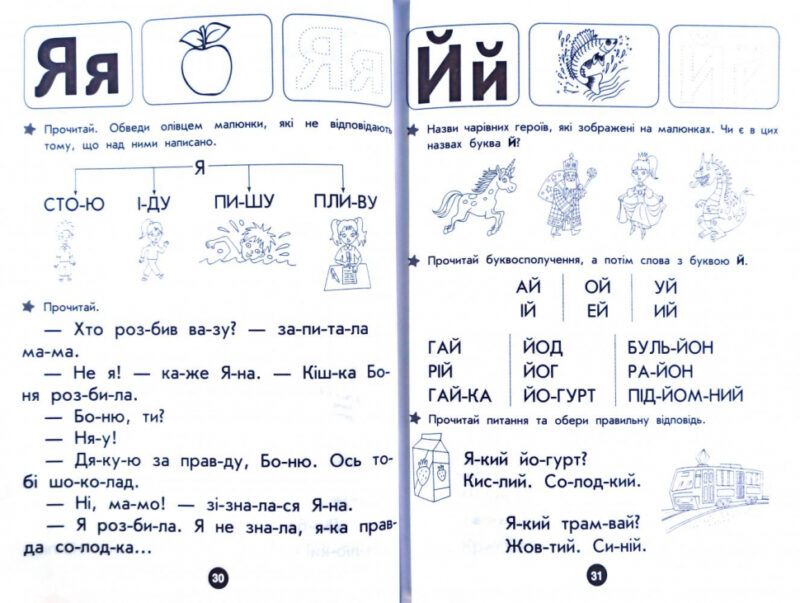 Яя
Яя
Прочитай. Обведи олівцем малюнки, які не відповідають
тому, що над ними написано.
Я
СТО-Ю І-ДУ ПИ-ШУ ПЛИ-ВУ
Прочитай.
— Хто роз-бив ва-зу? — за-пи-та-ла
ма-ма.
— Не я! — ка-же Я-на. — Кіш-ка Бо-
ня роз-би-ла.
— Бо-ню, ти?
— Ня-у!
— Дя-ку-ю за прав-ду, Бо-ню. Ось то-
бі шо-ко-лад.
— Ні, ма-мо! — зі-зна-ла-ся Я-на.
— Я роз-би-ла. Я не зна-ла, я-ка прав-
да со-лод-ка...
30
Йй
Йй
Назви чарівних героїв, які зображені на малюнках. Чи є в цих
назвах буква Й?
Прочитай буквосполучення, а потім слова з буквою Й.
АЙ ОЙ УЙ
ІЙ ЕЙ ИЙ
ГАЙ ЙОД БУЛЬ-ЙОН
РІЙ ЙОГ РА-ЙОН
ГАЙ-КА ЙО-ГУРТ ПІД-ЙОМ-НИЙ
Прочитай питання та обери правильну відповідь.
Я-кий йо-гурт?
Кис-лий. Со-лод-кий.
Я-кий трам-вай?
Жов-тий. Си-ній.
31